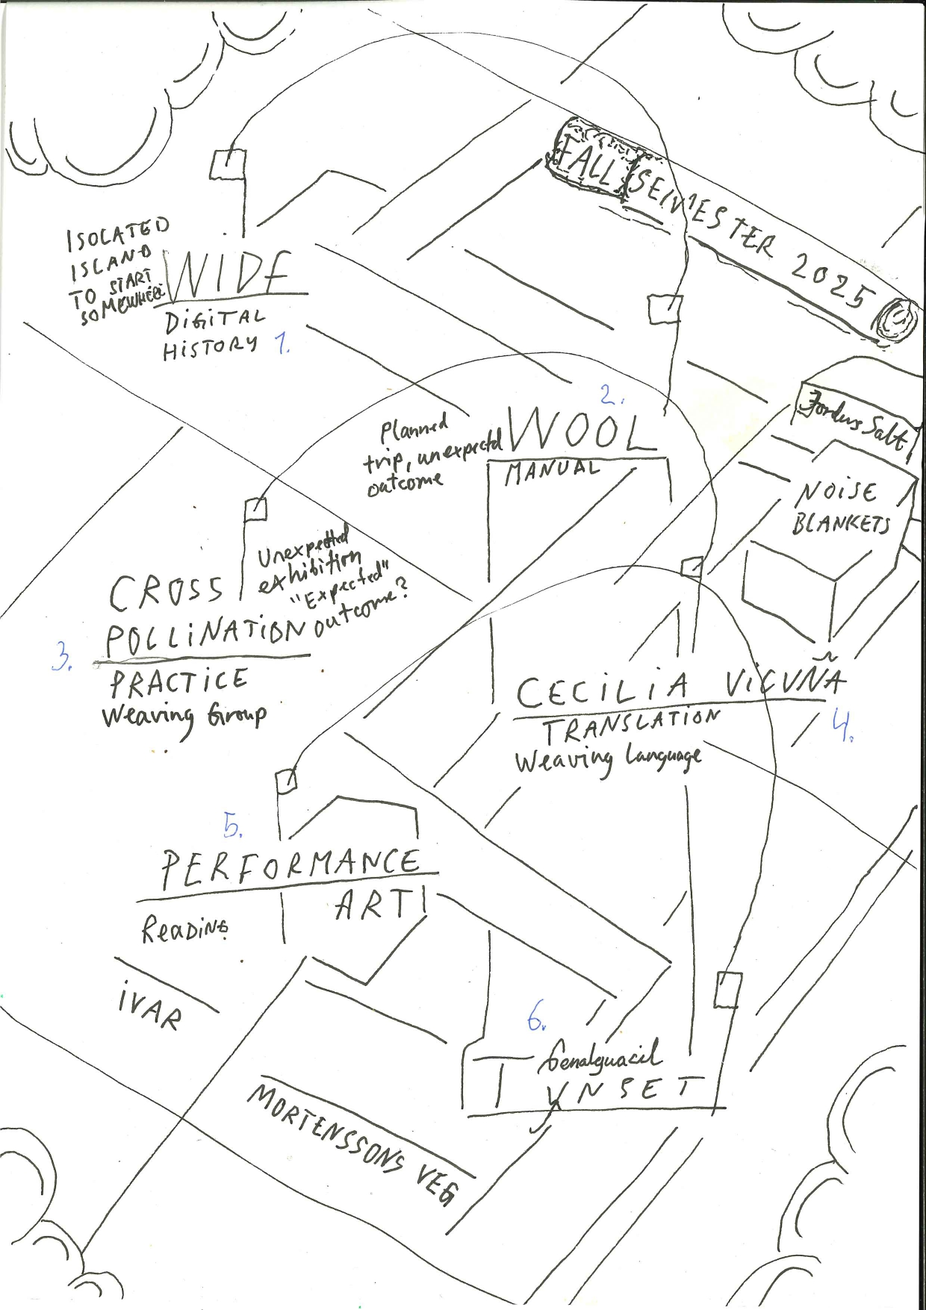 FALL SEMESTER 2025
ISOLATED
ISLAND
TO START
SOMEWHERE
WIDE
DIGITAL
HISTORY 1.
2.
WOOL
MANUAL
Planned
trip, unexpected
outcome
NOISE
BLANKETS
Unexpected
exhibition
"Expected"
outcome?
CROSS
POLLINATION
3.
PRACTICE
Weaving Group
CECILIA VICUÑA
TRANSLATION
4.
Weaving Language
5.
PERFORMANCE
ART!
READING
IVAR
6.
Genalguacil
MORTENSSONS VEG